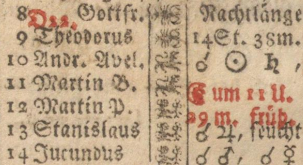 8 Gottfr. Nachtlänge
9 Theodorus 14St. 38m.
10 Andr. Avel. ☌ ☉ ♄,
11 Martin B. um 11 U.
12 Martin P. 29 m. früh.
13 Stanislaus ☌ ♃, feucht
14 Jucundus